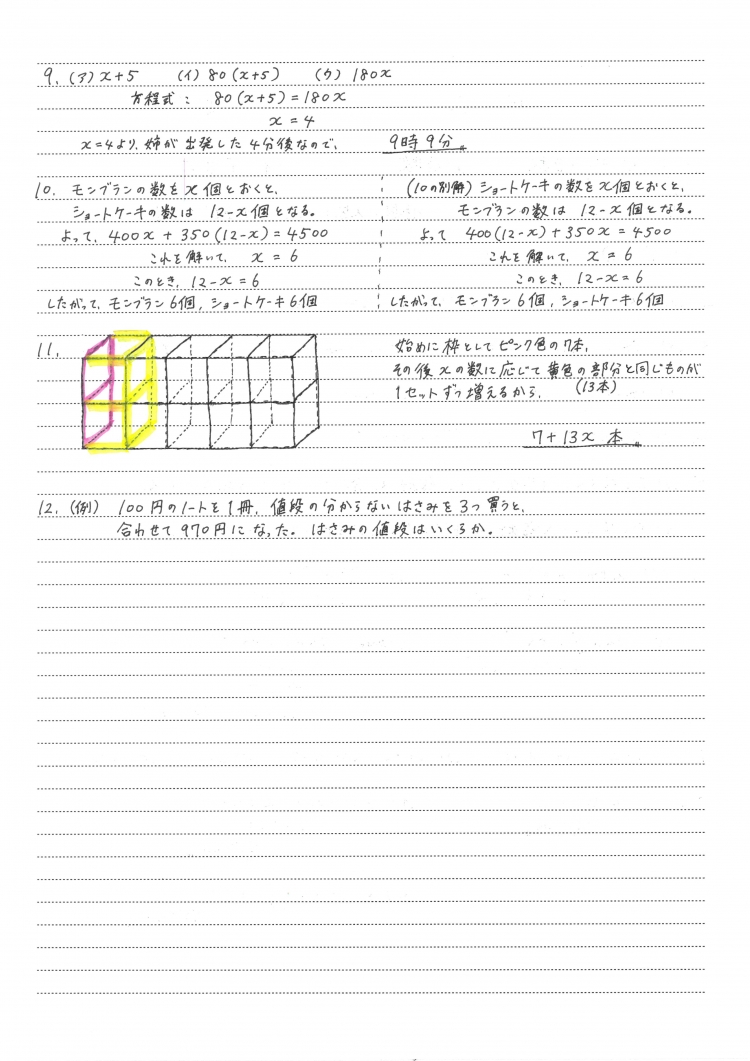 9. (ア) x+5 (イ) 80(x+5) (ウ) 180x
方程式: 80(x+5)=180x
x=4
x=4より、姉が出発した4分後なので、 9時9分
10. モンブランの数をx個とおくと、
ショートケーキの数は 12-x個となる。
よって、400x+350(12-x)=4500
これを解いて、x=6
このとき、12-x=6
したがって、モンブラン6個, ショートケーキ6個
(10の別解) ショートケーキの数をx個とおくと、
モンブランの数は 12-x個となる。
よって 400(12-x)+350x=4500
これを解いて、x=6
このとき、12-x=6
したがって、モンブラン6個, ショートケーキ6個
11.
始めに枠としてピンク色の7本、
その後xの数に応じて黄色の部分と同じものが
(13本)
1セットずつ増えるから、
7+13x 本
12. (例) 100円のノートを1冊、値段の分からないはさみを3つ買うと、
合わせて970円になった。はさみの値段はいくらか。